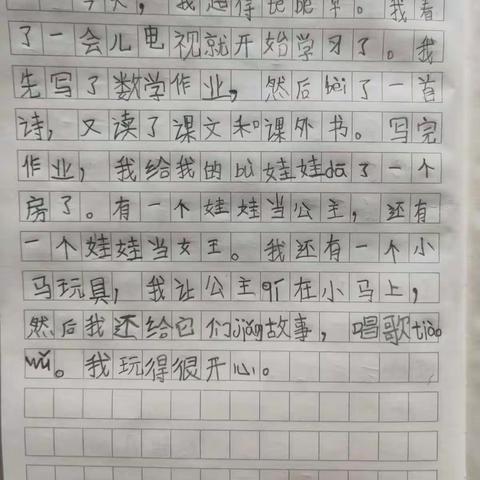 今天，我起得比晚早。我看
了一会儿电视就开始学习了。我
先写了数学作业，然后bèi了一首
诗，又读了课文和课外书。写完
作业，我给我的bù娃娃dā了一个
房了。有一个娃娃当公主，还有
一个娃娃当女王。我还有一个小
马玩具，我让公主qí在小马上，
然后我还给它们jiǎng故事，唱歌tiào
wǔ。我玩得很开心。